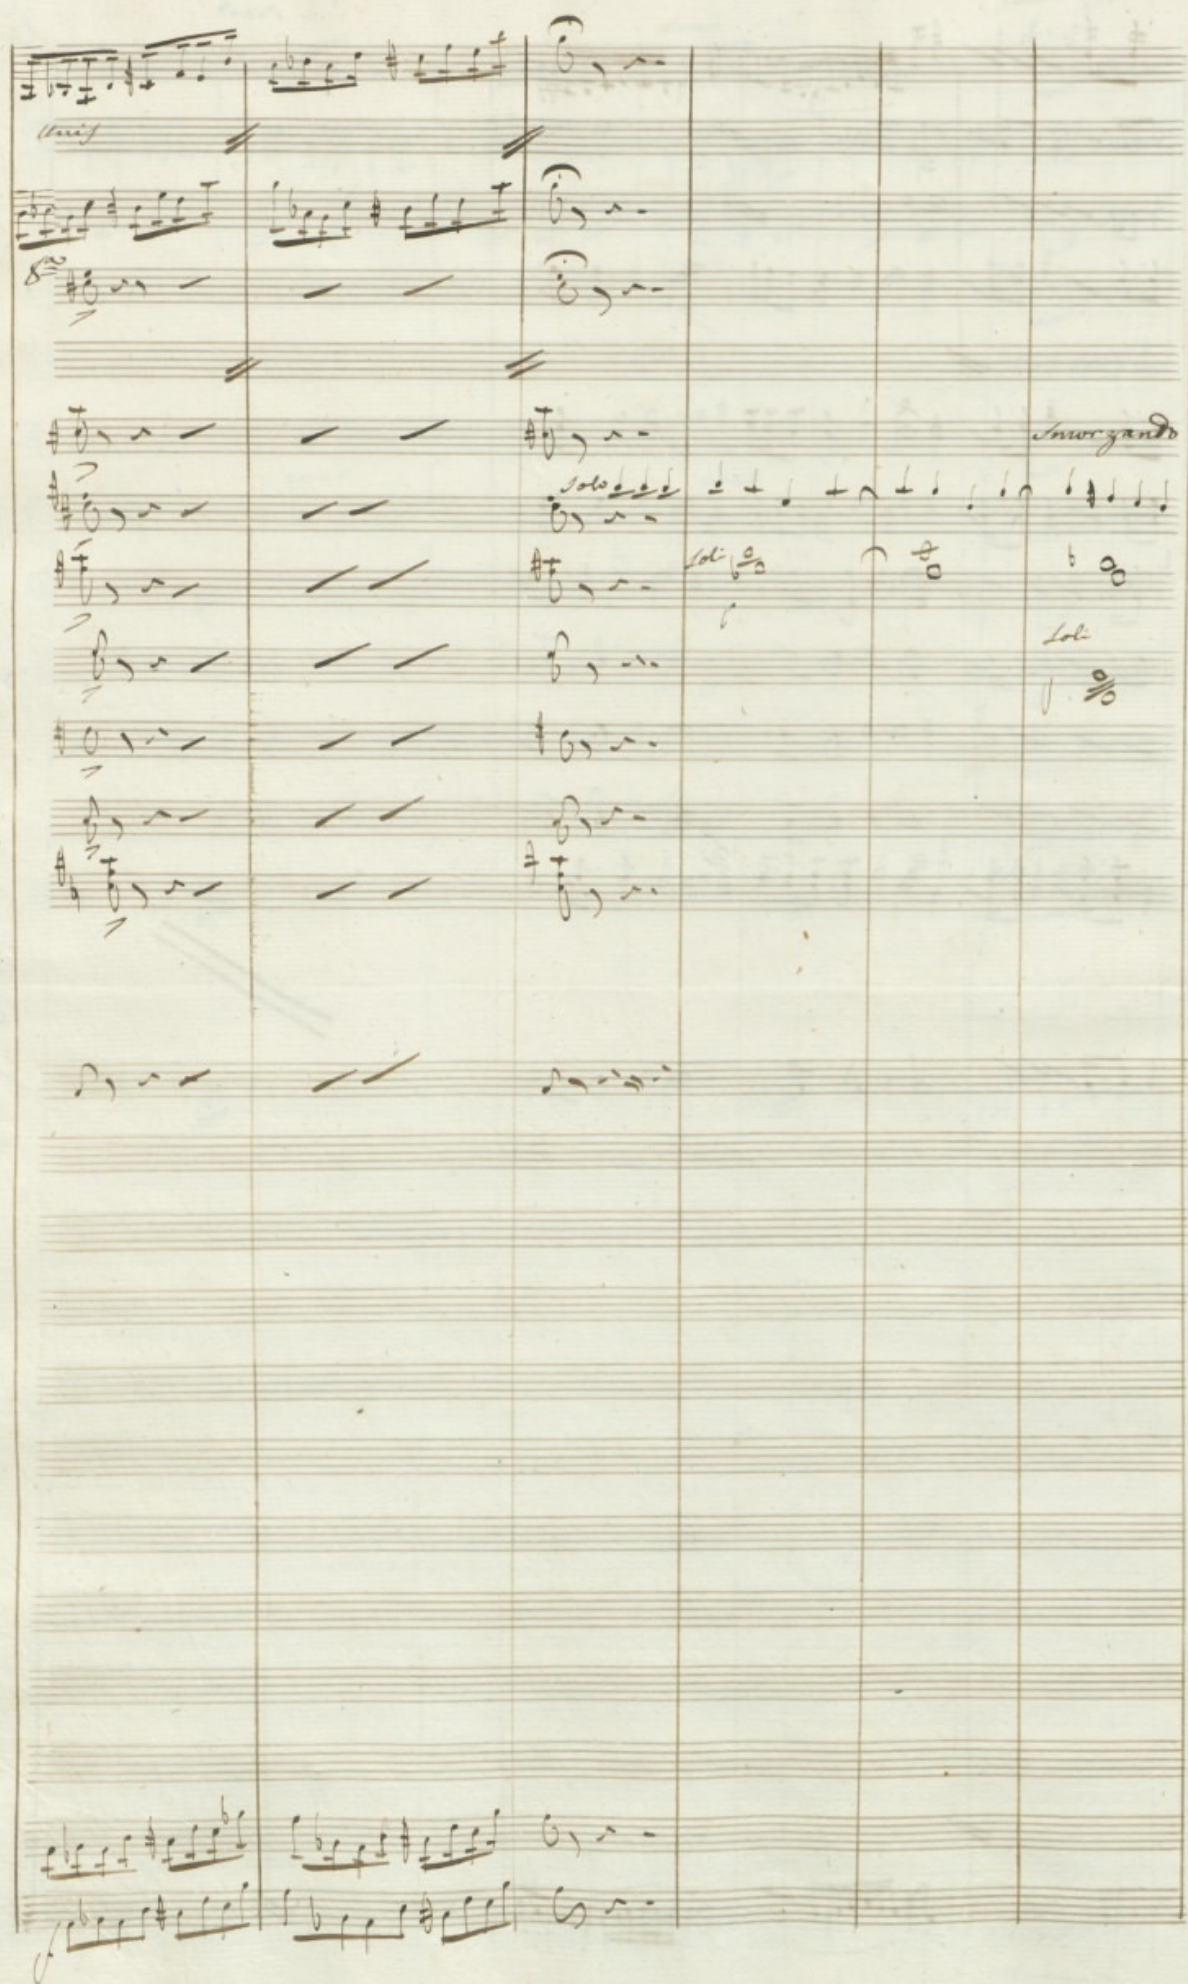 Unis
8va
Smorzando
Solo
Soli
Soli